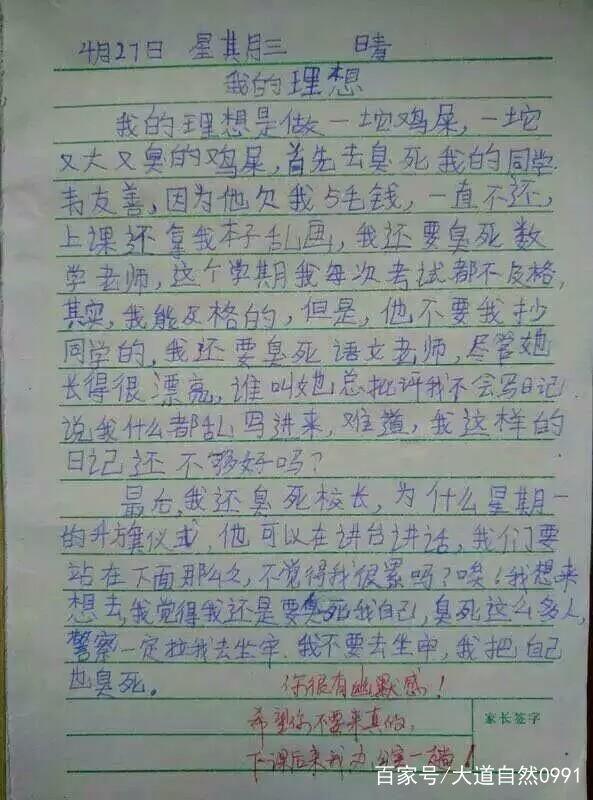 4月27日 星其月三 晴
我的理想
我的理想是做一坨鸡屎,一坨
又大又臭的鸡屎,首先去臭死我的同学
韦友善,因为他欠我5毛钱,一直不还,
上课还拿我本子乱画,我还要臭死数
学老师,这个学期我每次考试都不及格,
其实,我能及格的,但是,他不要我抄
同学的,我还要臭死语文老师,尽管她
长得很漂亮,谁叫她总批评我不会写日记
说我什么都乱写进来,难道,我这样的
日记还不够好吗?
最后,我还臭死校长,为什么星期一
的升旗仪式,他可以在讲台讲话,我们要
站在下面那么久,不觉得我很累吗?唉!我想来
想去,我觉得我还是要臭死我自己,臭死这么多人,
警察一定拉我去坐牢.我不要去坐牢,我把自己
也臭死。
你很有幽默感!
希望你不要来真的,
家长签字
下课后来我办公室一趟!
百家号/大道自然0991